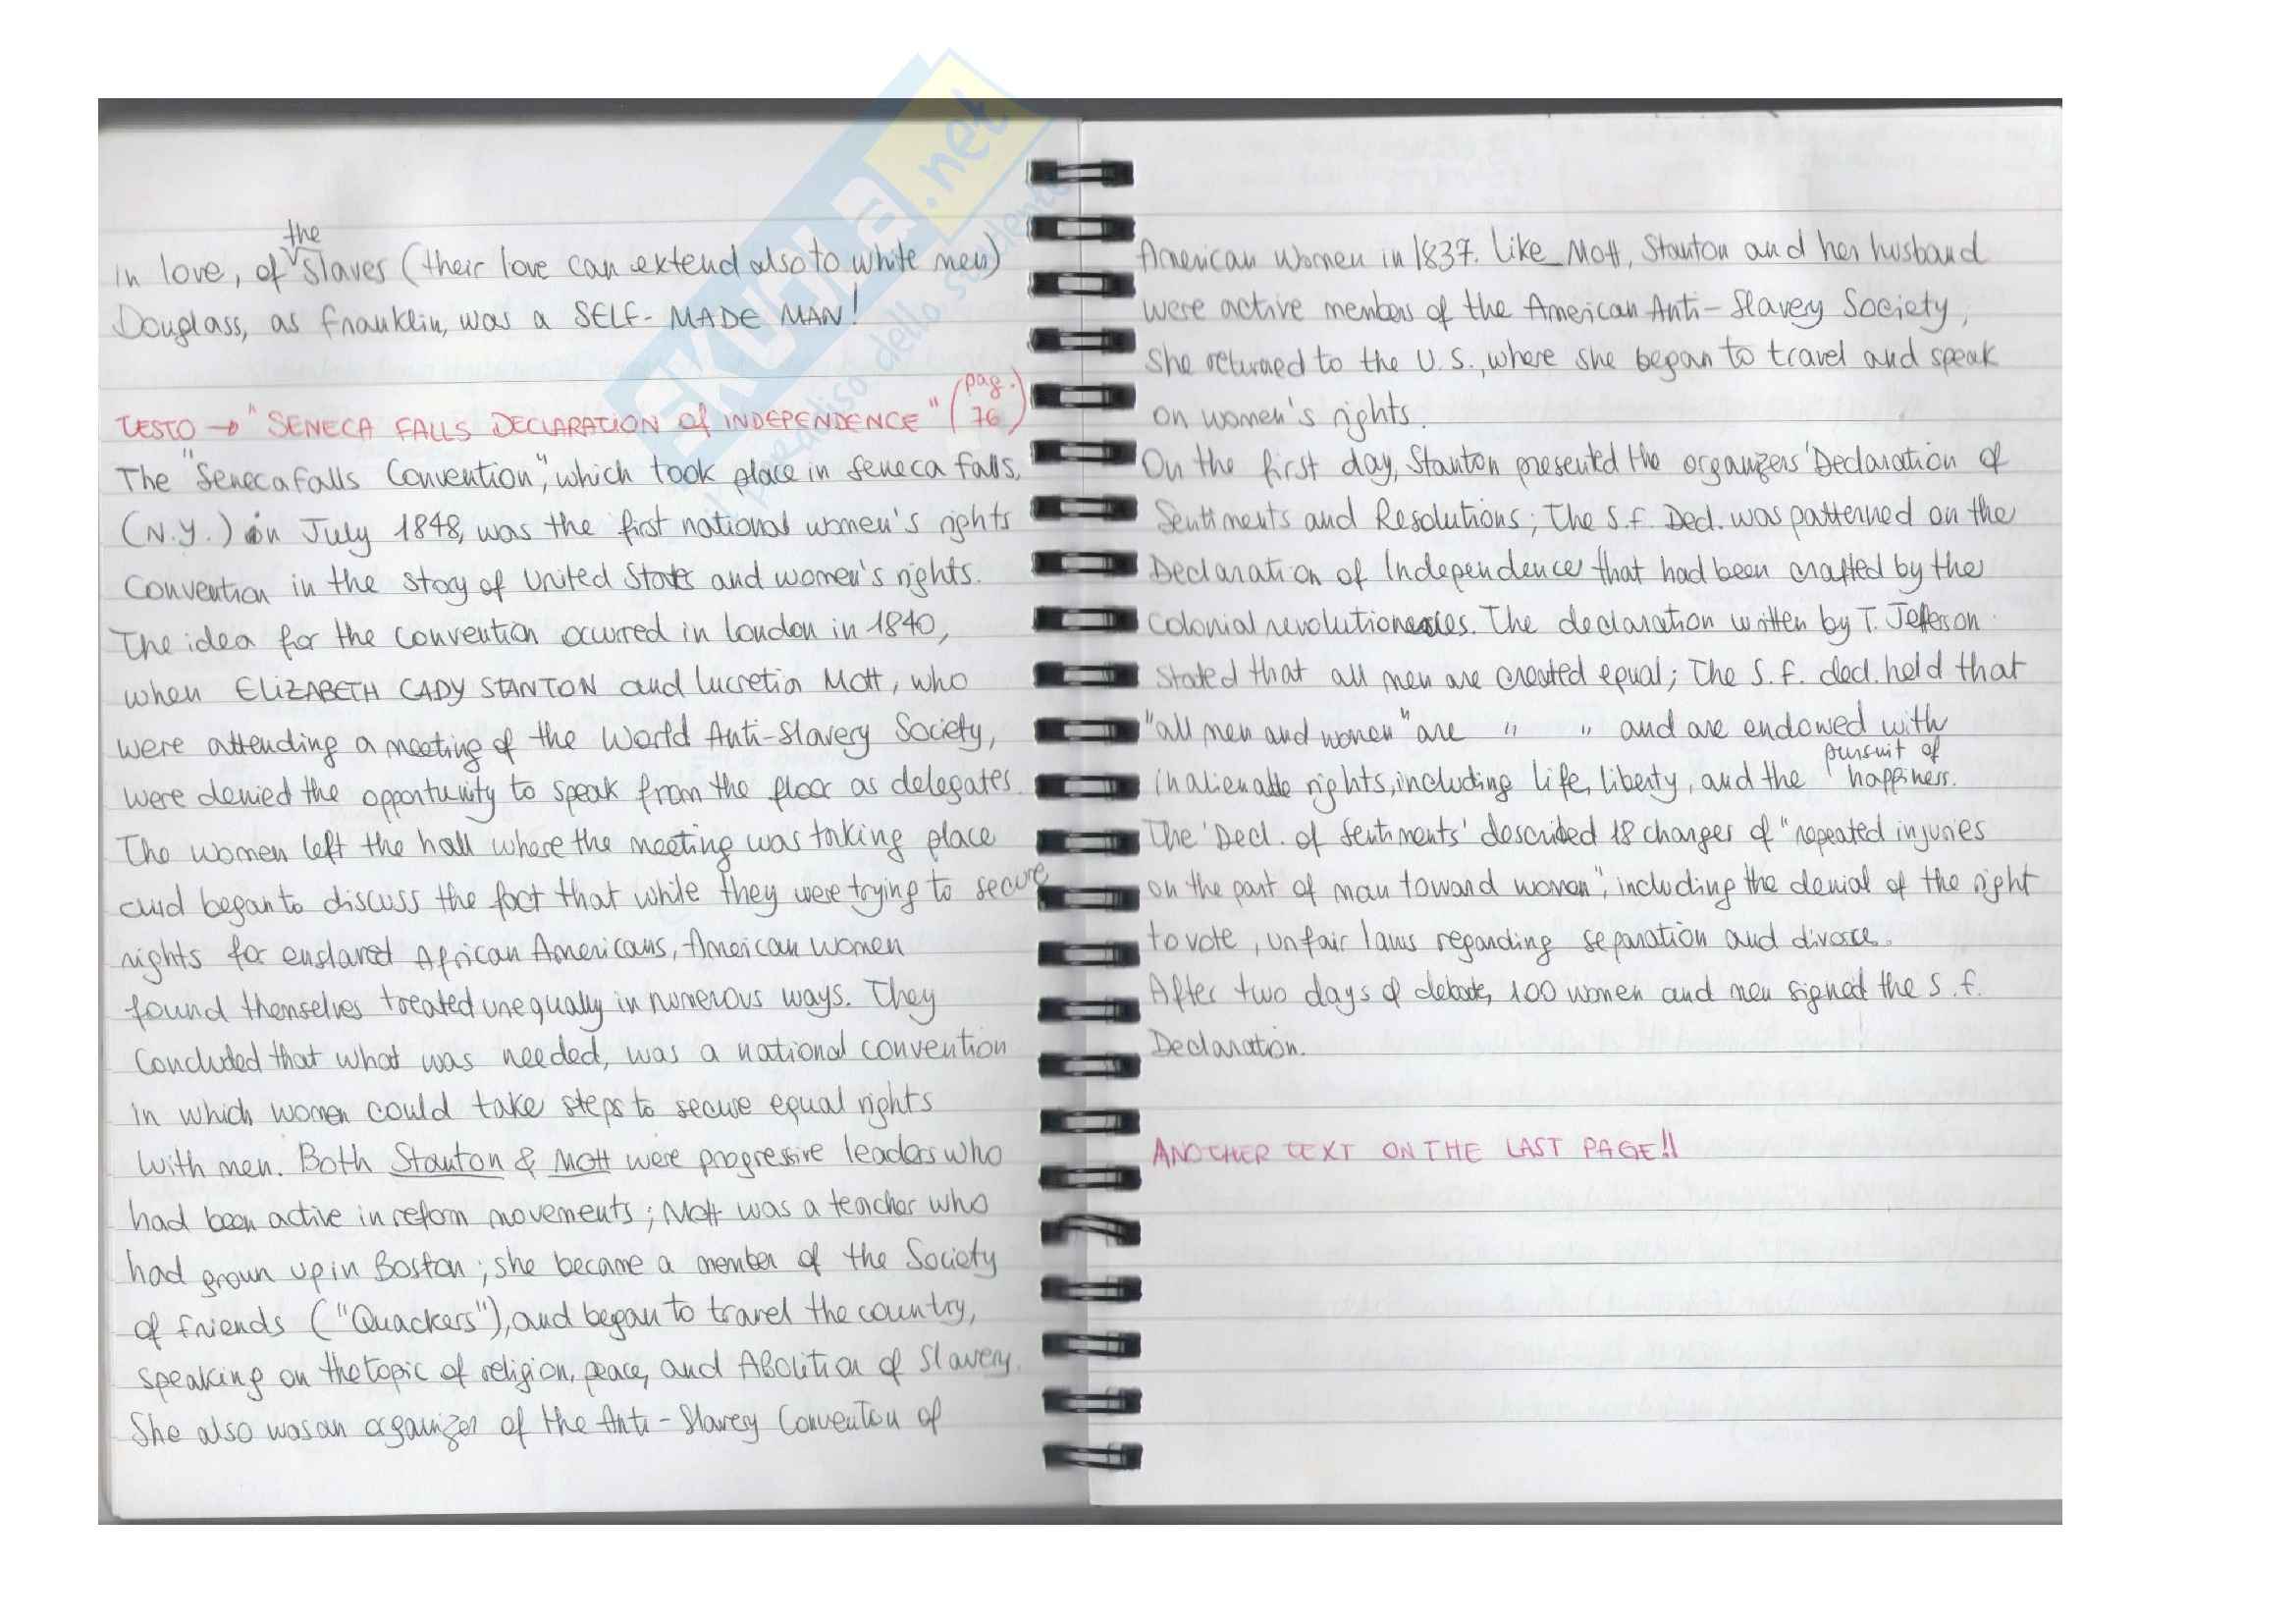 in love, of the slaves (their love can extend also to white men)
Douglass, as Franklin, was a SELF-MADE MAN!
TESTO → "SENECA FALLS DECLARATION of INDEPENDENCE" (pag. 76)
The "Seneca Falls Convention", which took place in Seneca Falls,
(N.Y.) in July 1848, was the first national women's rights
Convention in the story of United States and women's rights.
The idea for the convention ocurred in London in 1840,
when ELIZABETH CADY STANTON and Lucretia Mott, who
were attending a meeting of the World Anti-Slavery Society,
were denied the opportunity to speak from the floor as delegates.
The women left the hall where the meeting was taking place
and began to discuss the fact that while they were trying to secure
rights for enslaved African Americans, American women
found themselves treated unequally in numerous ways. They
concluded that what was needed, was a national convention
in which women could take steps to secure equal rights
with men. Both Stanton & Mott were progressive leaders who
had been active in reform movements; Mott was a teacher who
had grown up in Boston; she became a member of the Society
of Friends ("Quackers"), and began to travel the country,
speaking on the topic of religion, peace, and Abolition of Slavery.
She also was an organizer of the Anti-Slavery Convention of
American Women in 1837. Like Mott, Stanton and her husband
were active members of the American Anti-Slavery Society,
She returned to the U.S., where she began to travel and speak
on women's rights.
On the first day, Stanton presented the organizers' Declaration of
Sentiments and Resolutions; The S.F. Decl. was patterned on the
Declaration of Independence that had been crafted by the
Colonial revolutionaries. The declaration written by T. Jefferson
stated that all men are created equal; The S.F. decl. held that
"all men and women" are " " and are endowed with
inalienable rights, including life, liberty, and the pursuit of happiness.
The 'Decl. of Sentiments' described 18 charges of "repeated injuries
on the part of man toward woman", including the denial of the right
to vote, unfair laws regarding separation and divorce.
After two days of debate, 100 women and men signed the S.F.
Declaration.
ANOTHER TEXT ON THE LAST PAGE!!
SKUOLA.net
il paradiso dello studente